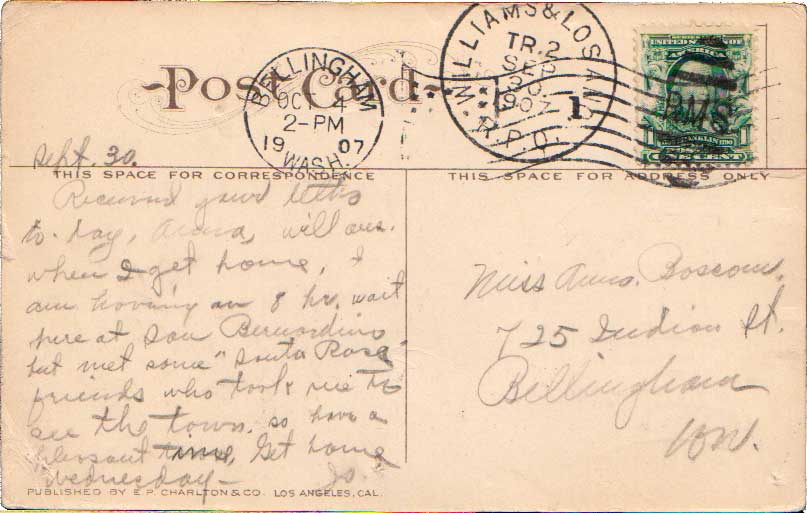 Post Card
BELLINGHAM
OCT 4
2-PM
19 07
WASH.
WILLIAMS & LOS ANG
TR. 2
SEP
30
1907
R.P.O.
1
R.M.S.
UNITED STATES OF
AMERICA
ONE CENT
Sept. 30.
THIS SPACE FOR CORRESPONDENCE
THIS SPACE FOR ADDRESS ONLY
Received your letter
to-day, Anna, will ans.
when I get home, I
am having an 8 hr. wait
here at San Bernardino
but met some "Santa Rosa"
friends who took me to
see the town, so have a
pleasant time, Get home
Wednesday— Jo.
Miss Anna Boscow.
725 Indian St.
Bellingham
Wn.
PUBLISHED BY E. P. CHARLTON & CO. LOS ANGELES, CAL.